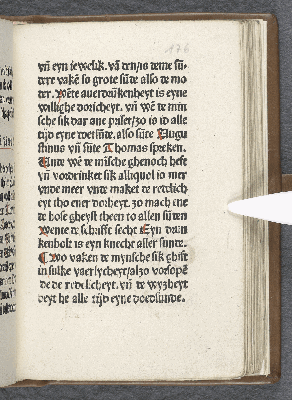 176
vn̄ eyn iewelik. vā den/is deme sū-
dere vakē so grote sūde also de mo
ter. Wēte auerdrūkenheyt is eyne
willighe doricheyt. vn̄ wē te min
sche sik dar ane priset/zo is id alle
tijd eyne doetsūde. also sūte Augu
stinus vn̄ sūte Thomas spreken.
Unde wē te mīsche ghenoch heft
vn̄ vordrinket sik alliquol is mer
vnde meer vnde maket te redelich
eyt tho ener dorheyt. zo mach ene
de hose gheyst theen to allen sūden
Wente te schrifft secht Eyn drun
kenbolt is eyn knecht aller sunde.
Wo vaken te mynsche sik ghift
in sulke vaerlycheyt/alzo vorsope
de de redelicheyt. vn̄ te wyzheyt
deyt he alle tijd eyne doedsunde.